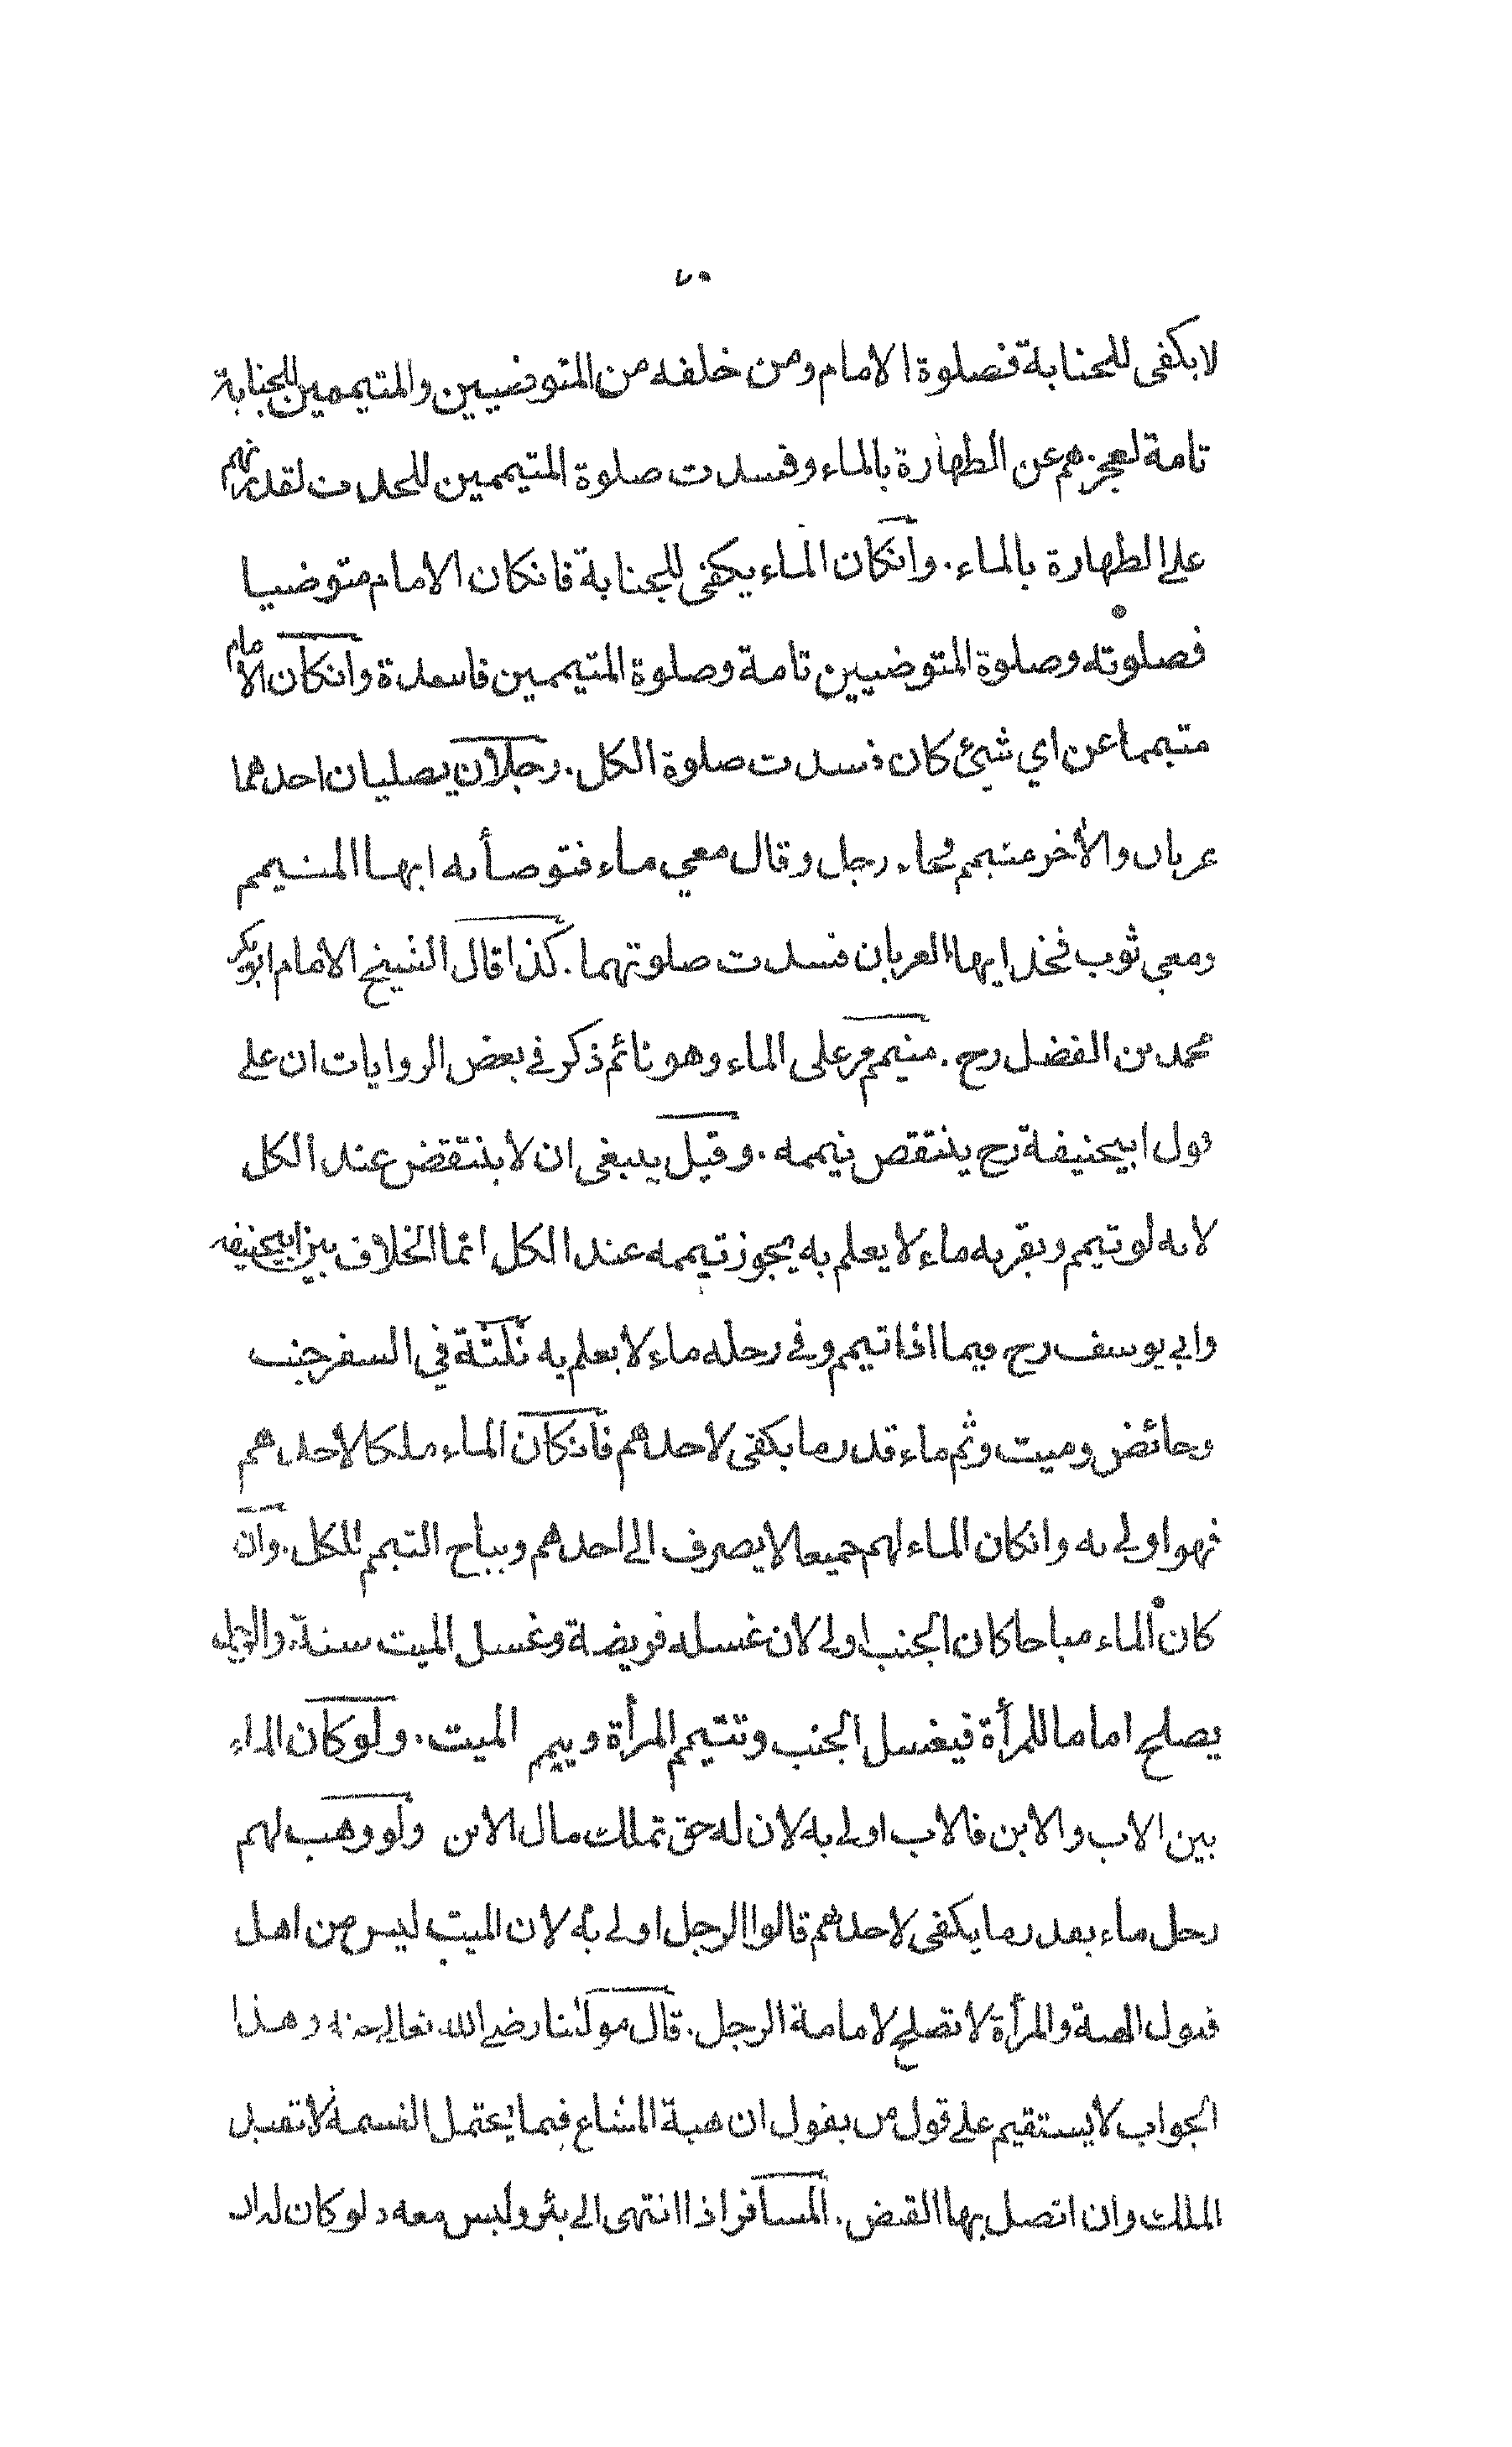 ٧٠
لا يكفى للجنابة فصلوة الامام ومن خلفه من المتوضيين والمتيممين للجنابة
تامة لعجزهم عن الطهارة بالماء وفسدت صلوة المتيممين للحدث لقدرتهم
على الطهارة بالماء. وانكان الماء يكفى للجنابة فانكان الامام متوضيا
فصلوته وصلوة المتوضيين تامة وصلوة المتيممين فاسدة وانكان الامام
متيمما عن اي شيئ كان فسدت صلوة الكل. رجلان يصليان احدهما
عريان والآخر متيمم فجاء رجل وقال معي ماء فتوضأ به ايها المتيمم
ومعي ثوب فخذ ايها العريان فسدت صلوتهما. كذا قال الشيخ الامام ابو بكر
محمد بن الفضل رح. متيمم مر على الماء وهو نائم ذكر في بعض الروايات ان على
قول ابيحنيفة رح ينتقض تيممه. وقيل ينبغى ان لا ينتقض عند الكل
لانه لو تيمم وبقربه ماء لا يعلم به يجوز تيممه عند الكل انما الخلاف بين ابيحنيفه
وابي يوسف رح فيما اذا تيمم وفي رحله ماء لا يعلم به ثلثة في السفر جنب
وحائض وميت وثم ماء قدر ما يكفى لاحدهم فانكان الماء ملكا لاحدهم
فهو اولى به وانكان الماء لهم جميعا لا يصرف الى احدهم ويباح التيمم للكل. وان
كان الماء مباحا كان الجنب اولى لان غسله فريضة وغسل الميت سنة. والرجل
يصلح اماما للمرأة فيغسل الجنب وتتيمم المرأة وييمم الميت. ولو كان الماء
بين الاب والابن فالاب اولى به لان له حق تملك مال الابن ولو وهب لهم
رجل ماء بقدر ما يكفى لاحدهم قالوا الرجل اولى به لان الميت ليس من اهل
قبول الهبة والمرأة لا تصلح لامامة الرجل. قال مولٰنا رضي الله تعالى عنه وهذا
الجواب لا يستقيم على قول من يقول ان هبة المشاع فيما يحتمل القسمة لا تفيد
الملك وان اتصل بها القبض. المسافر اذا انتهى الى بئر وليس معه دلو كان له ان